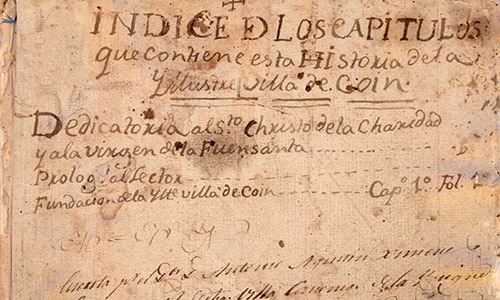 INDICE Đ LOS CAPITULOS
que contiene esta HIstoria de la
Yllustre Villa de COIN.
Dedicatoria al S.to Christo de la Charidad
y a la virgen de la Fuensanta
Prolog. al Lector
Fundacion de la Ytte villa de Coin Cap.o 1.o Fol. 1
Antonio Agustin Ximenez
Villa